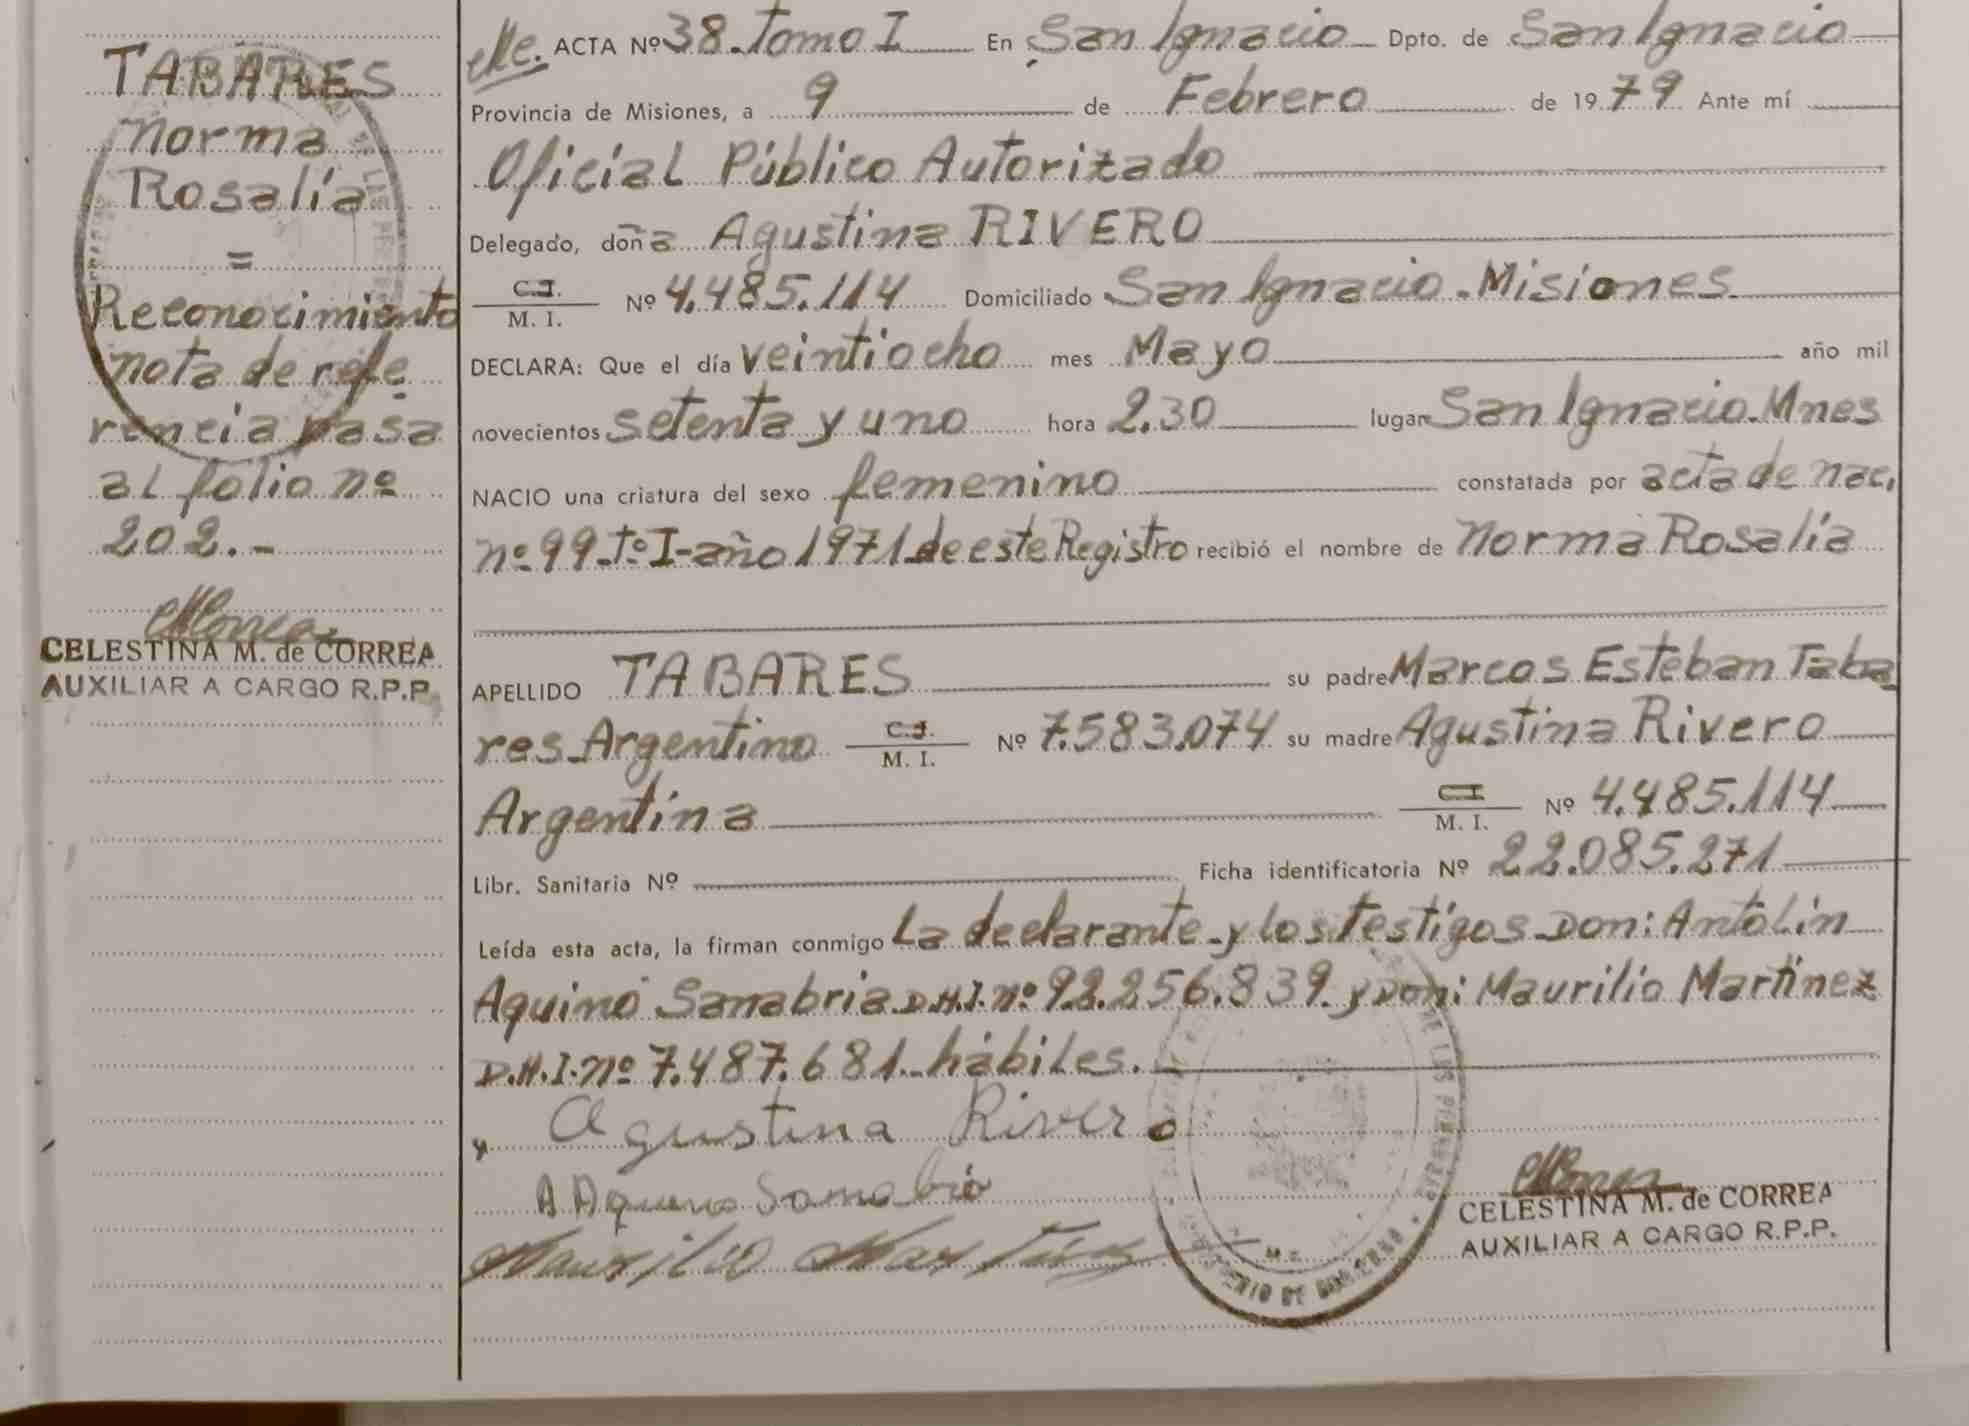 TABARES
Norma
Rosalía
=
Reconocimiento
nota de refe
rencia pasa
al folio nº
202.-
CELESTINA M. de CORREA
AUXILIAR A CARGO R.P.P.
ACTA Nº 38 Tomo I En San Ignacio Dpto. de San Ignacio
Provincia de Misiones, a 9 de Febrero de 1979 Ante mí
Oficial Público Autorizado
Delegado, doña Agustina RIVERO
C.I.
M. I. Nº 4.485.114 Domiciliado San Ignacio - Misiones
DECLARA: Que el día veintiocho mes Mayo año mil
novecientos setenta y uno hora 2.30 lugar San Ignacio - Mnes
NACIO una criatura del sexo femenino constatada por acta de nac.
nº 99 - tº I - año 1971 de este Registro recibió el nombre de Norma Rosalía
APELLIDO TABARES su padre Marcos Esteban Taba
res - Argentino C.I. M. I. Nº 7.583.074 su madre Agustina Rivero
Argentina C.I. M. I. Nº 4.485.114
Libr. Sanitaria Nº Ficha identificatoria Nº 22.085.271
Leída esta acta, la firman conmigo La declarante - y los testigos - Don: Antolín
Aquino Sanabria D.N.I. nº 92.256.839. y Don: Maurilio Martinez
D.N.I. nº 7.487.681. hábiles.
Agustina Rivero
A Aquino Sanabria
Maurilio Martinez
CELESTINA M. de CORREA
AUXILIAR A CARGO R.P.P.